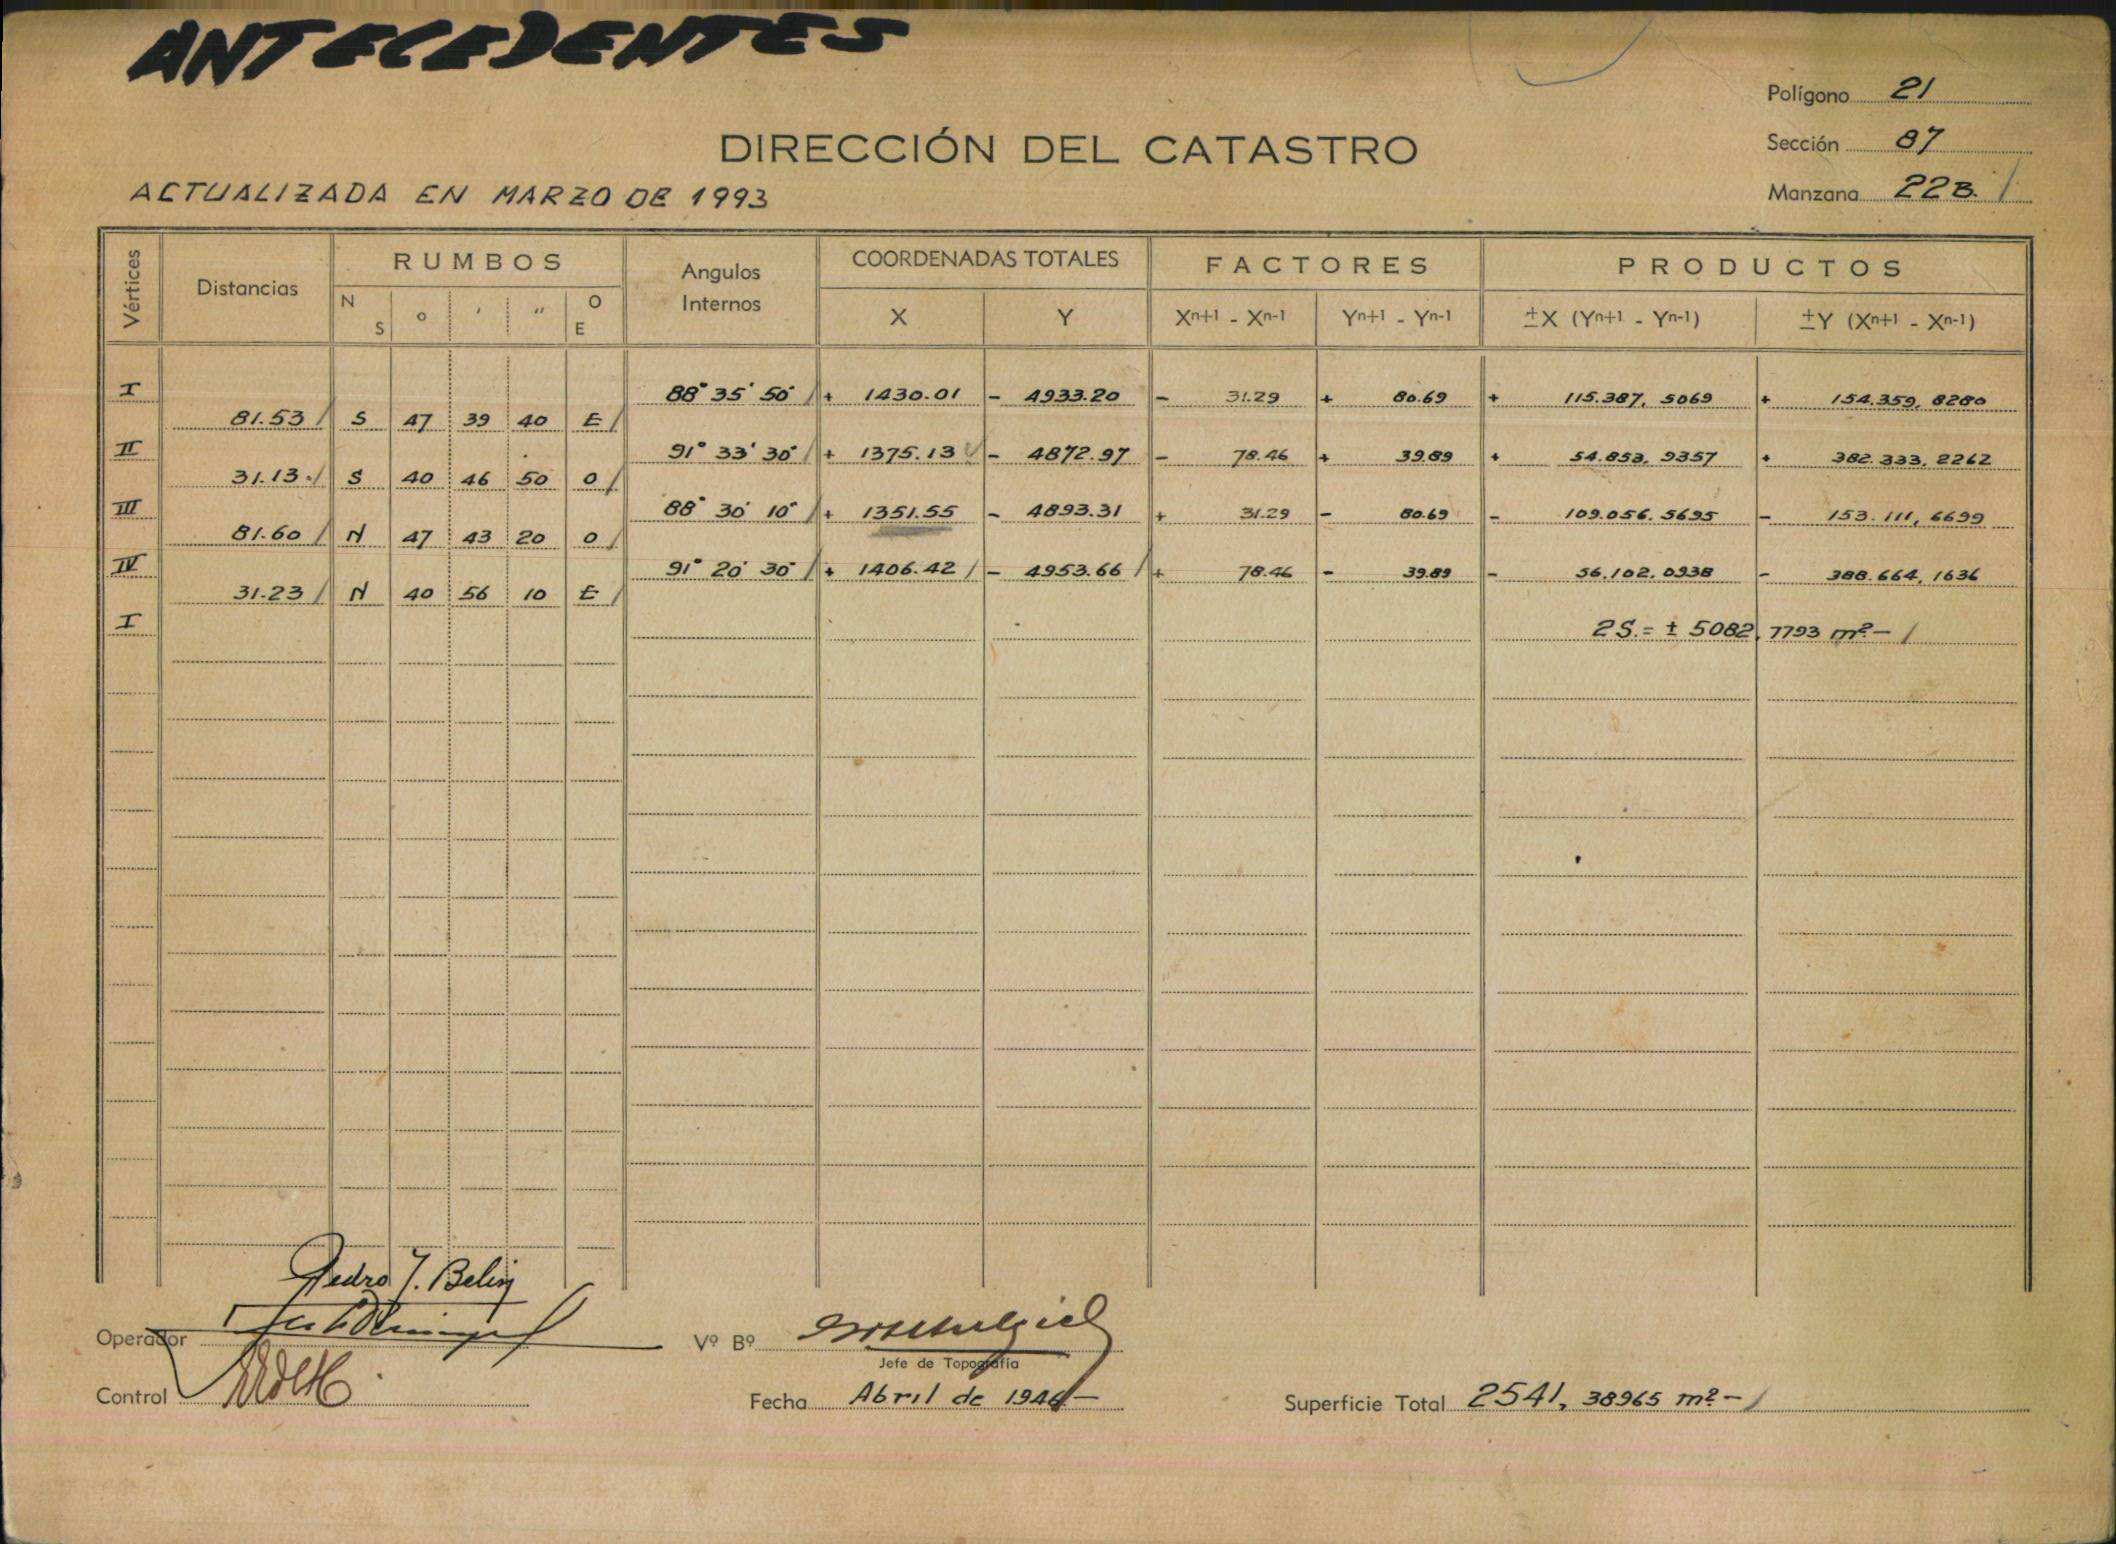 ANTECEDENTES
Polígono 21
DIRECCIÓN DEL CATASTRO
Sección 87
ACTUALIZADA EN MARZO DE 1993
Manzana 22B.
Vértices Distancias RUMBOS Angulos Internos COORDENADAS TOTALES FACTORES PRODUCTOS
N S o ' " O E X Y Xn+1 - Xn-1 Yn+1 - Yn-1 ±X (Yn+1 - Yn-1) ±Y (Xn+1 - Xn-1)
I 88° 35' 50" + 1430.01 - 4933.20 - 31.29 + 80.69 + 115.387, 5069 + 154.359, 8280
81.53 S 47 39 40 E
II 91° 33' 30" + 1375.13 - 4872.97 - 78.46 + 39.89 + 54.853, 9357 + 382.333, 2262
31.13 S 40 46 50 O
III 88° 30' 10" + 1351.55 - 4893.31 + 31.29 - 80.69 - 109.056, 5695 - 153.111, 6699
81.60 N 47 43 20 O
IV 91° 20' 30" + 1406.42 - 4953.66 + 78.46 - 39.89 - 56.102, 0938 - 388.664, 1636
31.23 N 40 56 10 E
I 2S.= ± 5082, 7793 m²-
Pedro J. Belin
Operador
Vº Bº
Jefe de Topografía
Control
Fecha Abril de 1946-
Superficie Total 2541, 38965 m²-